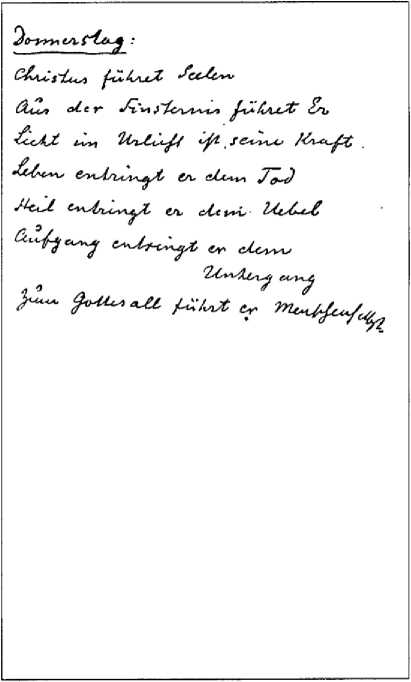 Donnerstag:
Christus führet Seelen
Aus der Finsternis führet Er
Licht im Urlicht ist seine Kraft.
Leben entringt er dem Tod
Heil entringt er dem Uebel
Aufgang entringt er dem
Untergang
Zum Gottesall führt er Menschenselbst